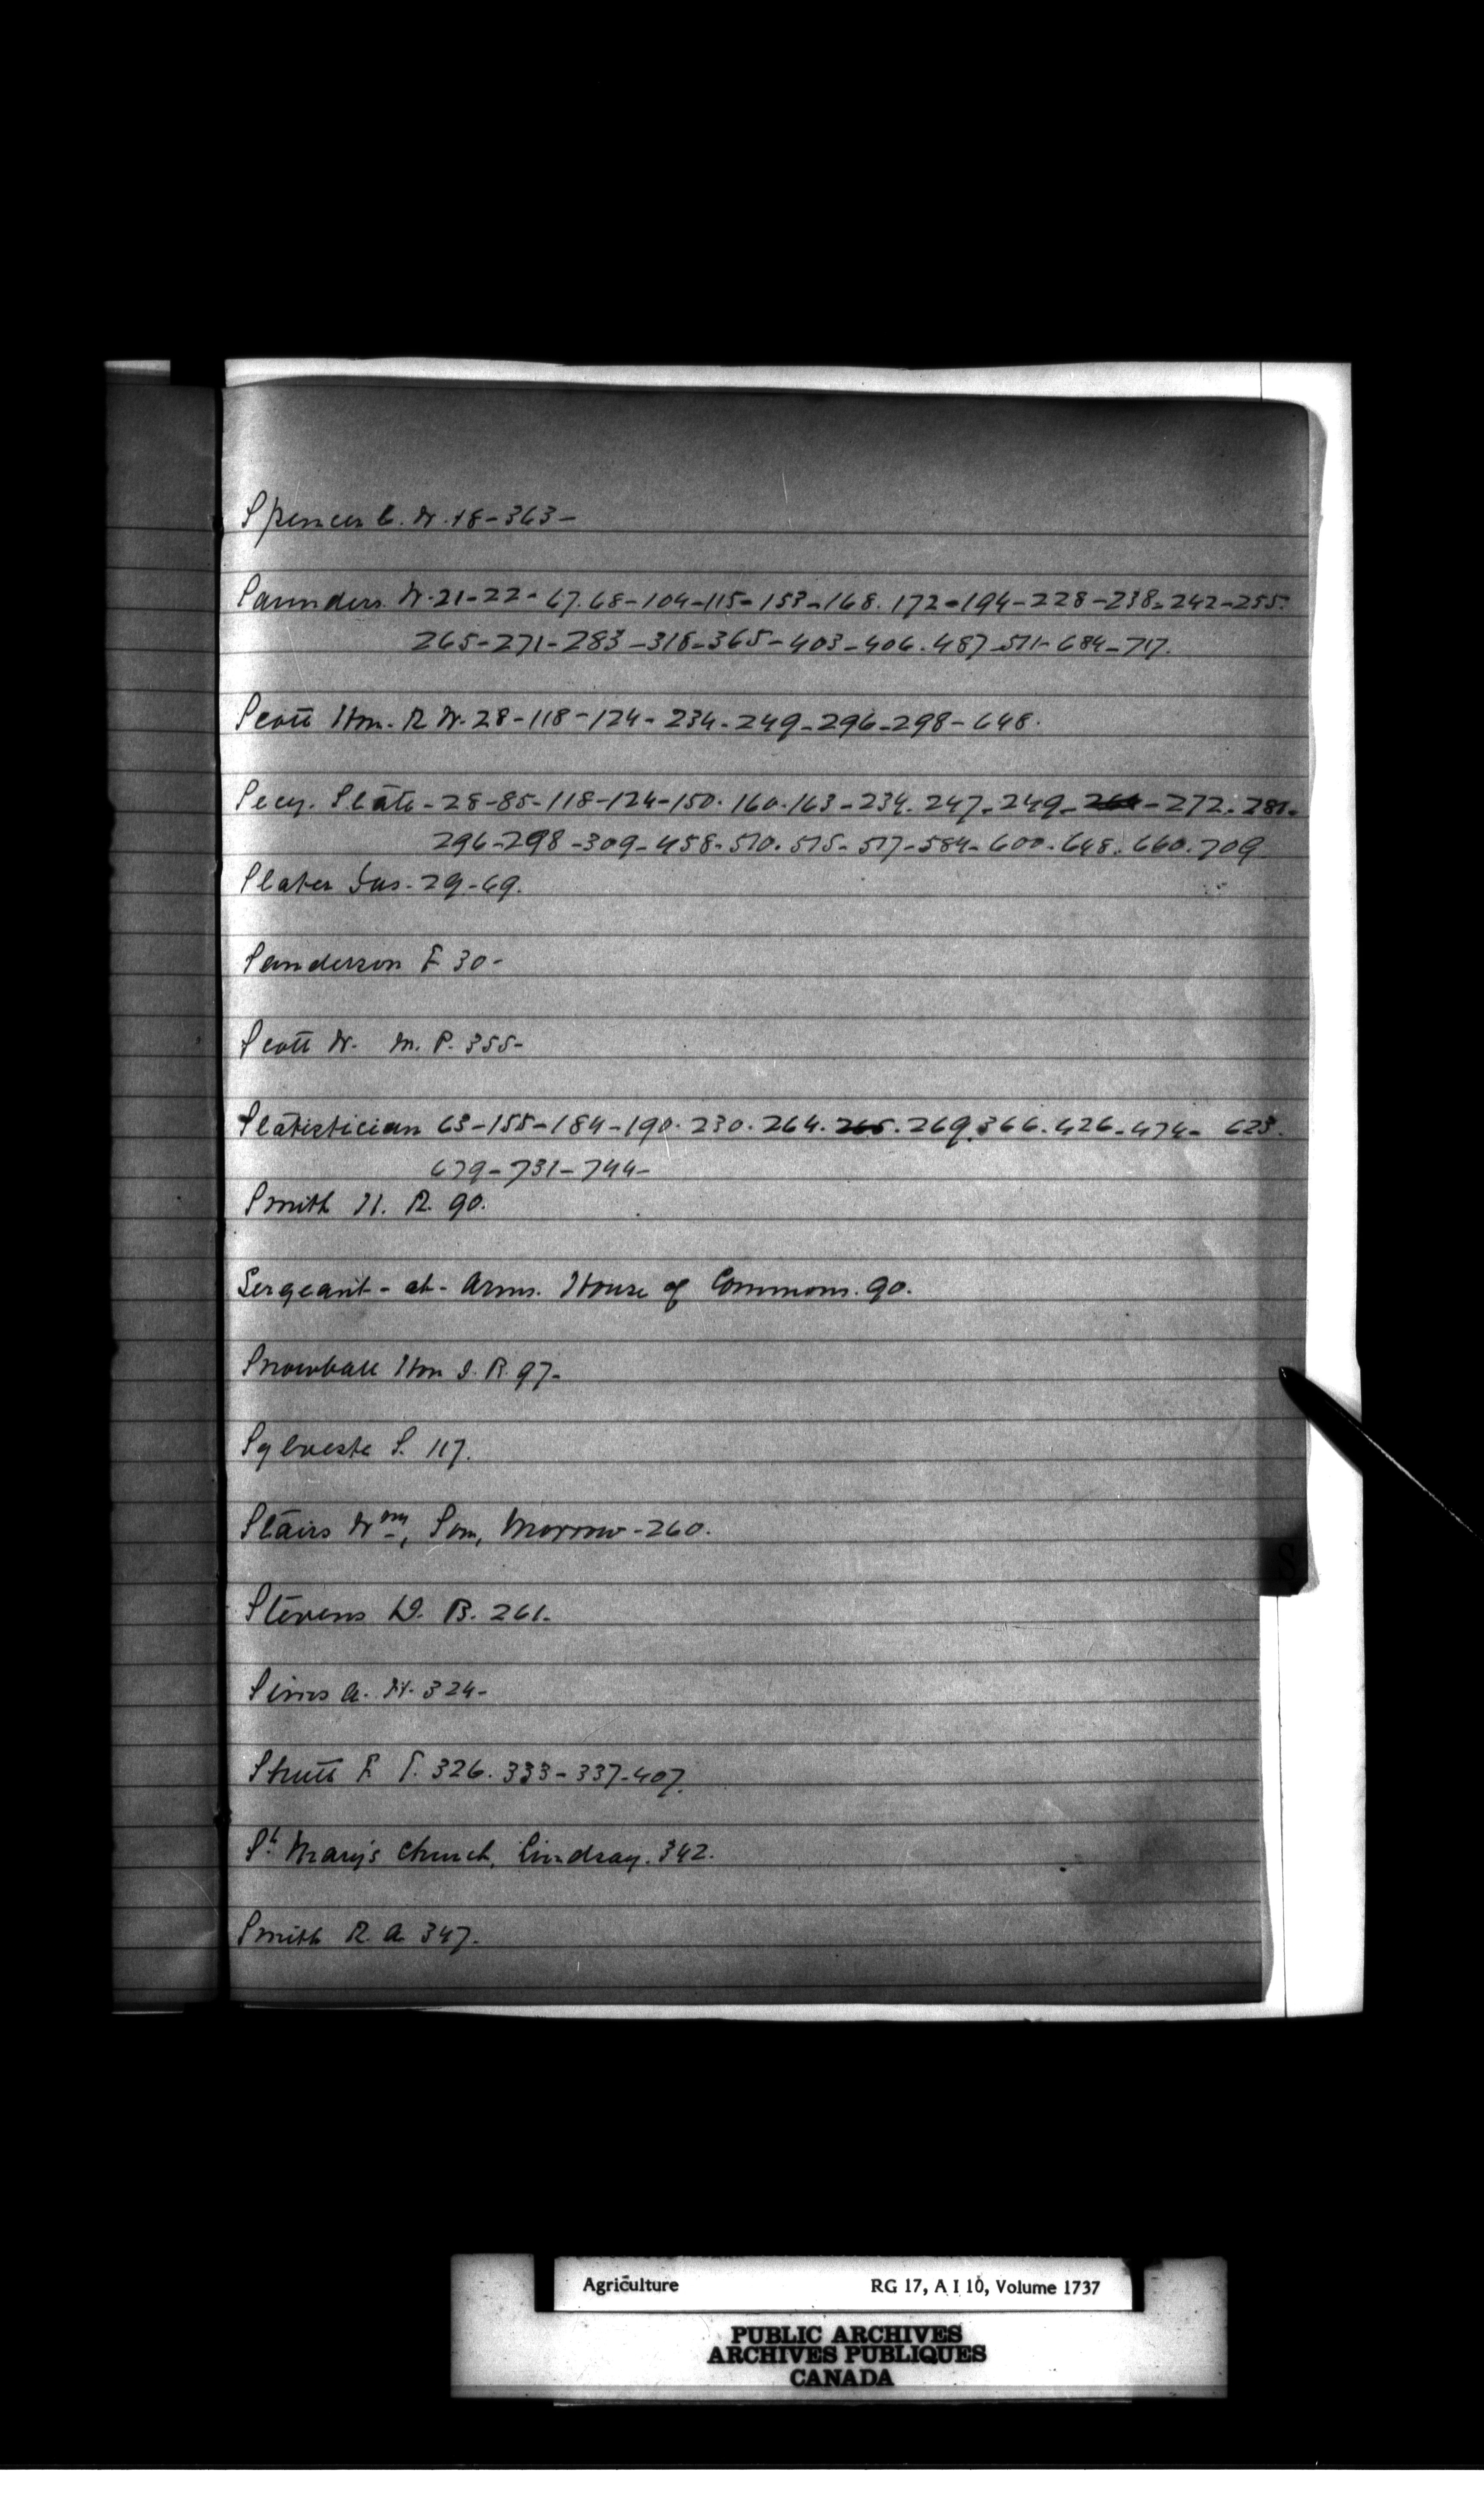 Spencer C. W. 18-363-
Saunders. W. 21-22-67.68-104-115-153-168.172-194-228-238-242-255.
265-271-283-318-365-403-406.487-571-684-717.
Scott Hon. R W. 28-118-124-234-249-296-298-648.
Secy. State-28-85-118-124-150.160.163-234.247-249-264-272.281-
296-298-309-458-510.515-517-584-600-648.660.709
Slater Jas. 29-69.
Sanderson F 30-
Scott W. M. P. 355-
Statistician 63-155-184-190.230.264.265.269.366.426-474-623.
679-731-744-
Smith H. R. 90.
Sergeant-at-Arms. House of Commons. 90.
Snowball Hon J. B. 97-
Sylveste S. 117.
Stairs Wm, Son, Morrow-260.
Stevens D. B. 261-
Sims A. H. 324-
Shutt F. T. 326.333-337-407.
St Mary's Church, Lindsay. 342.
Smith R. A 347.
S
Agriculture RG 17, A I 10, Volume 1737
PUBLIC ARCHIVES
ARCHIVES PUBLIQUES
CANADA